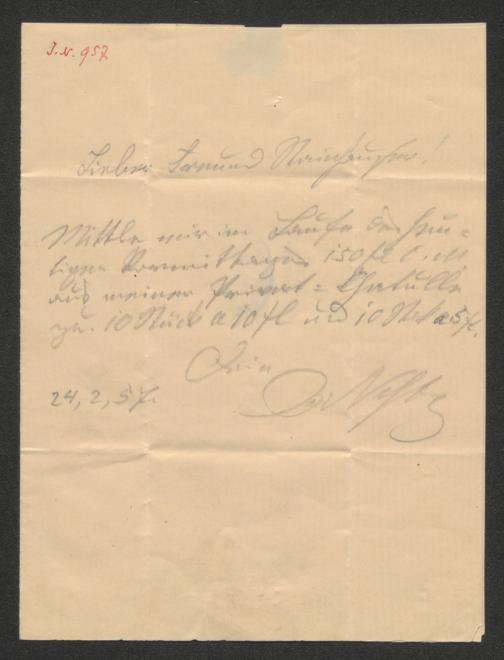 J. N. 957
Lieber Freund
Mittle mir im Laufe des heu=
tigen Vormittages 150 fl C. M
aus meiner Privat=Chatulle
zu. 10 Stück a 10 fl und 10 Stk a 5 fl.
Dein
24, 2, 57.